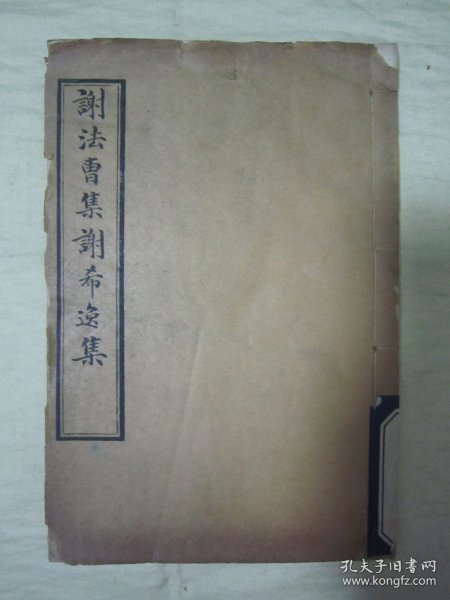 謝法曹集謝希逸集
孔夫子旧书网
www.kongfz.com